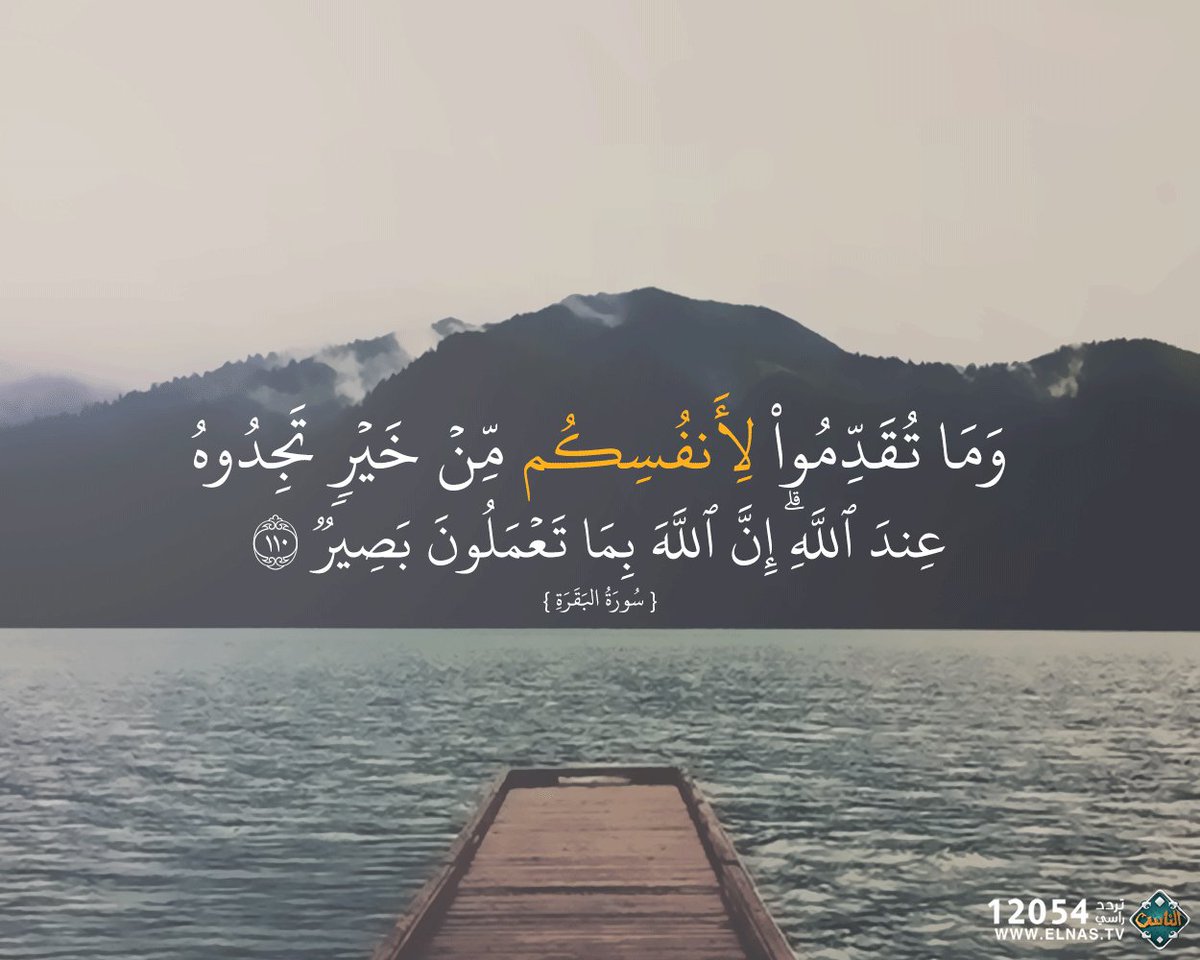 وَمَا تُقَدِّمُوا۟ لِأَنفُسِكُم مِّنْ خَيْرٍ تَجِدُوهُ
عِندَ ٱللَّهِ ۗ إِنَّ ٱللَّهَ بِمَا تَعْمَلُونَ بَصِيرٌ ١١٠
{ سُورَةُ البَقَرَةِ }
تردد راسي 12054
WWW.ELNAS.TV
الناس